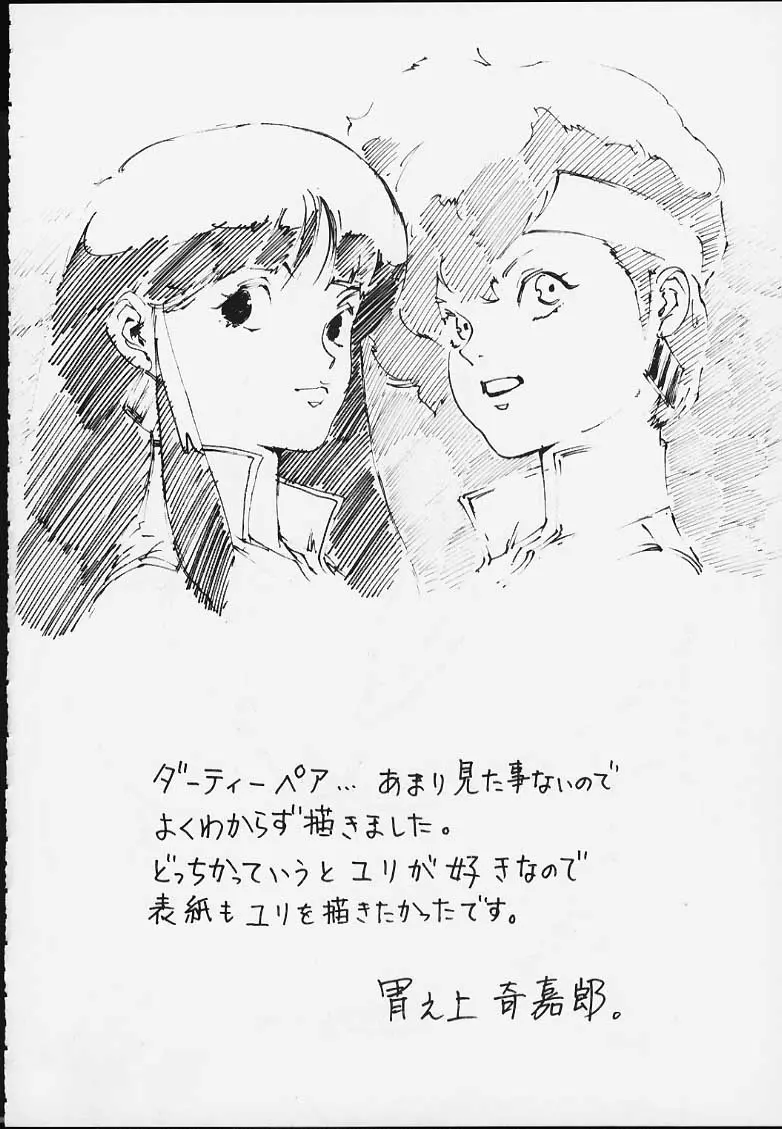 ダーティーペア… あまり見た事ないので
よくわからず描きました。
どっちかっていうと ユリが 好きなので
表紙も ユリを描きたかったです。
胃之上 奇嘉郎。